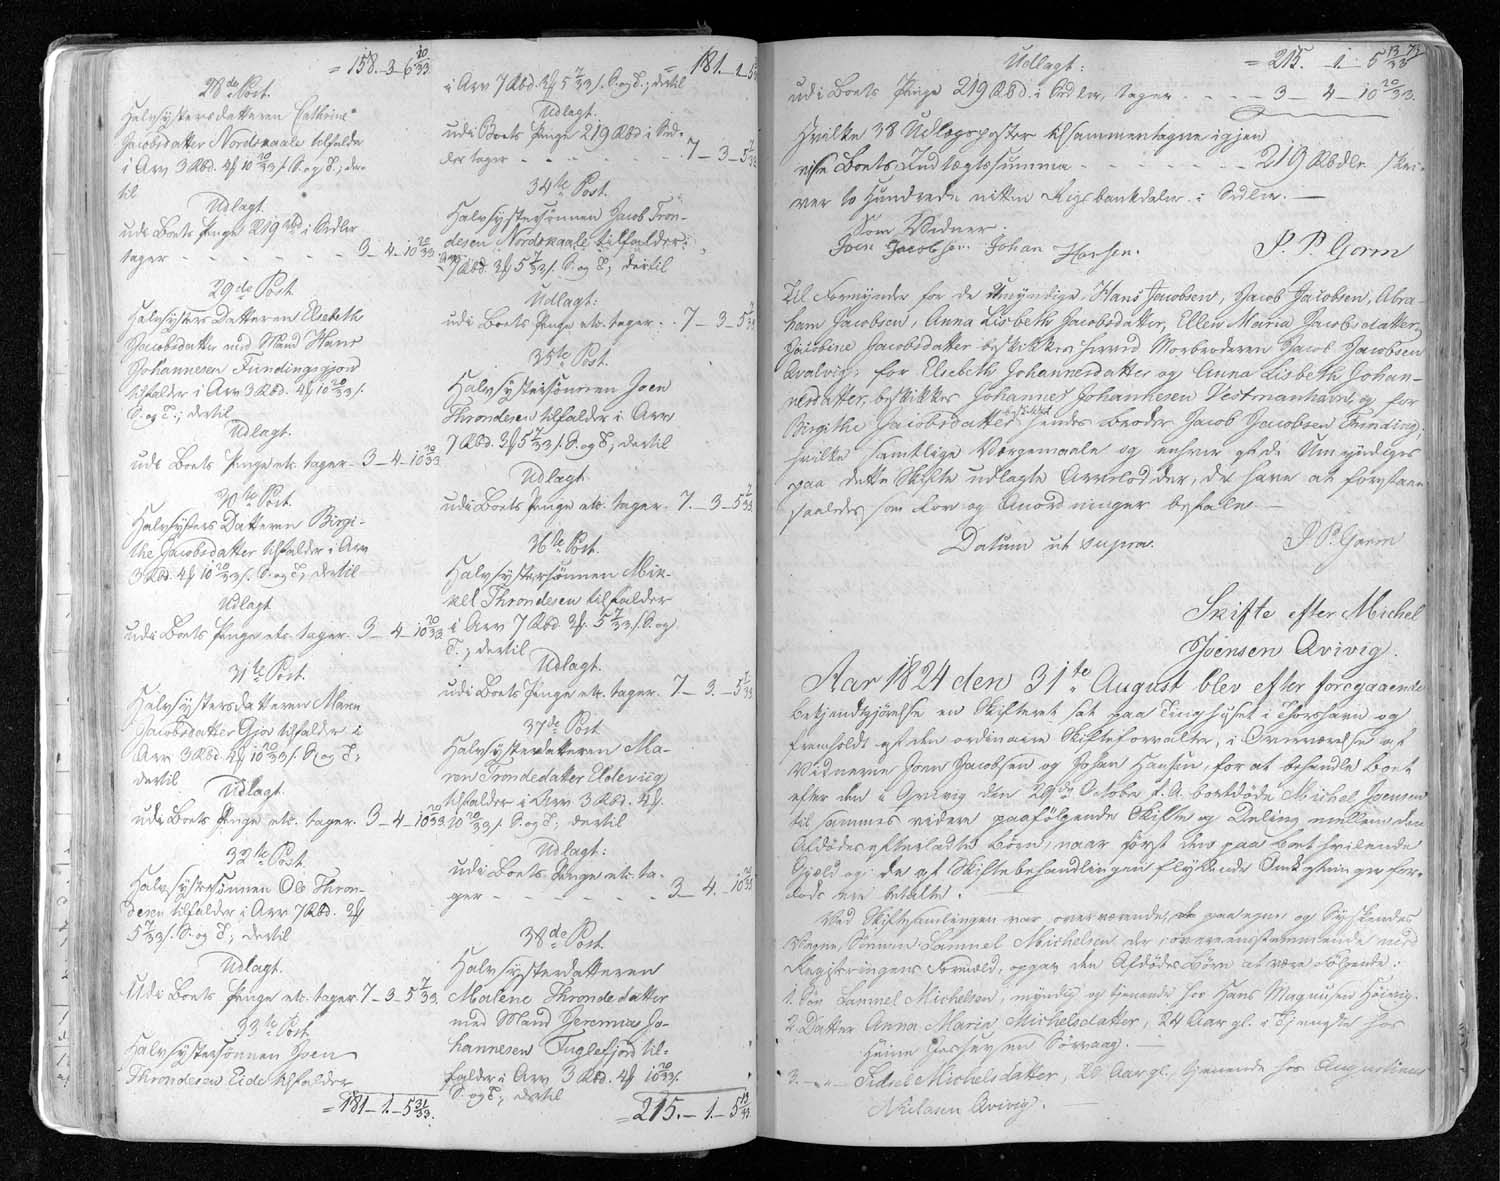 = 158. 3 6 10/33
28de Post.
Halvsystersdatteren Cathrine
Jacobsdatter Nordskaale tilfalder
i Arv 3 Rbd. 4 10 20/33 s. S. og T.; der-
til
Udlagt.
udi Boets Penge 219 Rbd i Sedler
tager - - - - - - 3 - 4 - 10 20/33.
29de Post
Halvsysters Datteren Elsebeth
Jacobsdatter med Mand Hans
Johannesen Fundingsgjov
tilfalder i Arv 3 Rbd. 4 10 20/33 s.
S. og T.; dertil
Udlagt.
udi Boets Penge etc. tager - 3 - 4 - 10 20/33.
30te Post.
Halvsysters Datteren Birgi-
the Jacobsdatter tilfalder i Arv
3 Rbd. 4 10 20/33 s. S. og T.; dertil
Udlagt
udi Boets Penge etc. tager. 3 - 4 - 10 20/33.
31te Post.
Halvsystersdatteren Maren
Jacobsdatter Gjov tilfalder i
Arv 3 Rbd. 4 10 20/33 s. S. og T.;
dertil
Udlagt.
udi Boets Penge etc. tager. 3 - 4 - 10 20/33.
32te Post
Halvsystersønnen Ole Thron-
desen tilfalder i Arv 7 Rbd. 3
5 7/33 s. S. og T.; dertil
Udlagt.
Udi Boets Penge etc. tager 7 - 3 - 5 7/33.
33te Post
Halvsystersønnen Joen
Throndesen Eide tilfalder
= 181 - 1. - 5 31/33.
= 181. - 1 - 5
i Arv 7 Rbd. 3 5 7/33 s. S. og T.; dertil
Udlagt.
udi Boets Penge 219 Rbd i Sed-
der tager - - - - - - 7 - 3 - 5 7/33
34te Post.
Halvsystersønnen Jacob Tron-
desen Nordskaale tilfalder i
Arv 7 Rbd. 3 5 7/33 s. S. og T.; dertil
Udlagt:
udi Boets Penge etc. tager: 7 - 3 - 5 7/33
35te Post.
Halvsystersønnen Joen
Throndesen tilfalder i Arv
7 Rbd. 3 5 7/33 s. S. og T.; dertil
Udlagt
udi Boets Penge etc. tager. 7. - 3 - 5 7/33.
36te Post.
Halvsystersønnen Mik-
kel Throndesen tilfalder
i Arv 7 Rbd 3 5 7/33 s. S. og
T.; dertil
Udlagt.
udi Boets Penge etc. tager. 7 - 3. - 5 7/33
37de Post
Halvsysterdatteren Ma-
ren Trondedatter Eldevig
tilfalder i Arv 3 Rbd. 4
10 20/33 s. S. og T.; dertil
Udlagt:
udi Boets Penge etc. ta-
ger - - - - - - 3 - 4. - 10 20/33
38de Post
Halvsysterdatteren
Malene Throndedatter
med Mand Jeremias Jo-
hannesen Fuglefjord til-
falder i Arv 3 Rbd. 4 10 20/33 s.
S. og T.; dertil
= 215. - 1 - 5 13/33
Udlagt: = 215. - 1 - 5 13/33
udi Boets Penge 219 Rbd. i Sedler, tager - - - - 3 - 4 - 10 20/33.
Hvilke 38 Udlægsposter tilsammentagne igjen
vise Boets Indtægtssumma - - - - - - 219 Rbdlr. skri-
ver to hundrede nitten Rigsbankdaler i Sedler. -
Som Vidner:
Joen Jacobsen. Johan Hansen. P. P. Garm
Til Formynder for de Umyndige Hans Jacobsen, Jacob Jacobsen, Abra-
ham Jacobsen, Anna Lisbeth Jacobsdatter, Ellen Maria Jacobsdatter,
Jacobine Jacobsdatter beskikkes herved Morbroderen Jacob Jacobsen
Qvalvig; for Elsebeth Johannesdatter og Anna Lisbeth Johan-
nesdatter, beskikkes Johannes Johannesen Vestmanhavn, og for
Birgithe Jacobsdatter beskikket hendes Broder Jacob Jacobsen Funding,
hvilke samtlige Værgemaale og enhver af de Umyndiges
paa dette Skifte udlagte Arvelodder, de have at forestaae
saaledes som Lov og Anordninger befale. -
Datum ut supra. P. P. Garm
Skifte efter Michel
Joensen Qvivig.
Aar 1824 den 31te August blev efter foregaaende
bekjendtgjørelse en Skifteret sat paa Tinghuset i Thorshavn og
fremholdt af den ordinaire Skifteforvalter, i Overværelse af
Vidnerne Joen Jacobsen og Johan Hansen, for at behandle Boet
efter den i Qvivig den 29de October f. A. bortdøde Michel Joensen
til sammes videre paafølgende Skifte og Deling mellem den
Afdødes efterladte Børn, naar først den paa boet hvilende
Gjæld og de af Skiftebehandlingen flydende Omkostninger for-
lods ere betalte.
Ved Skiftesamlingen var overværende, paa egne og Sydskendes
Vegne, Sønnen Samuel Michelsen der overeensstemmende med
Registeringens Formeld, opgav den Afdødes Børn at være følgende:
1. Søn Samuel Michelsen, myndig og tjenende hos Hans Magnusen Høivig.
2. Datter Anna Maria Michelsdatter, 24 Aar gl. i Tjeneste hos
Heine Sørvaag. -
3. - " - Sidsel Michelsdatter, 20 Aar gl., tjenende hos Augustinus
Nielsen Qvivig. -